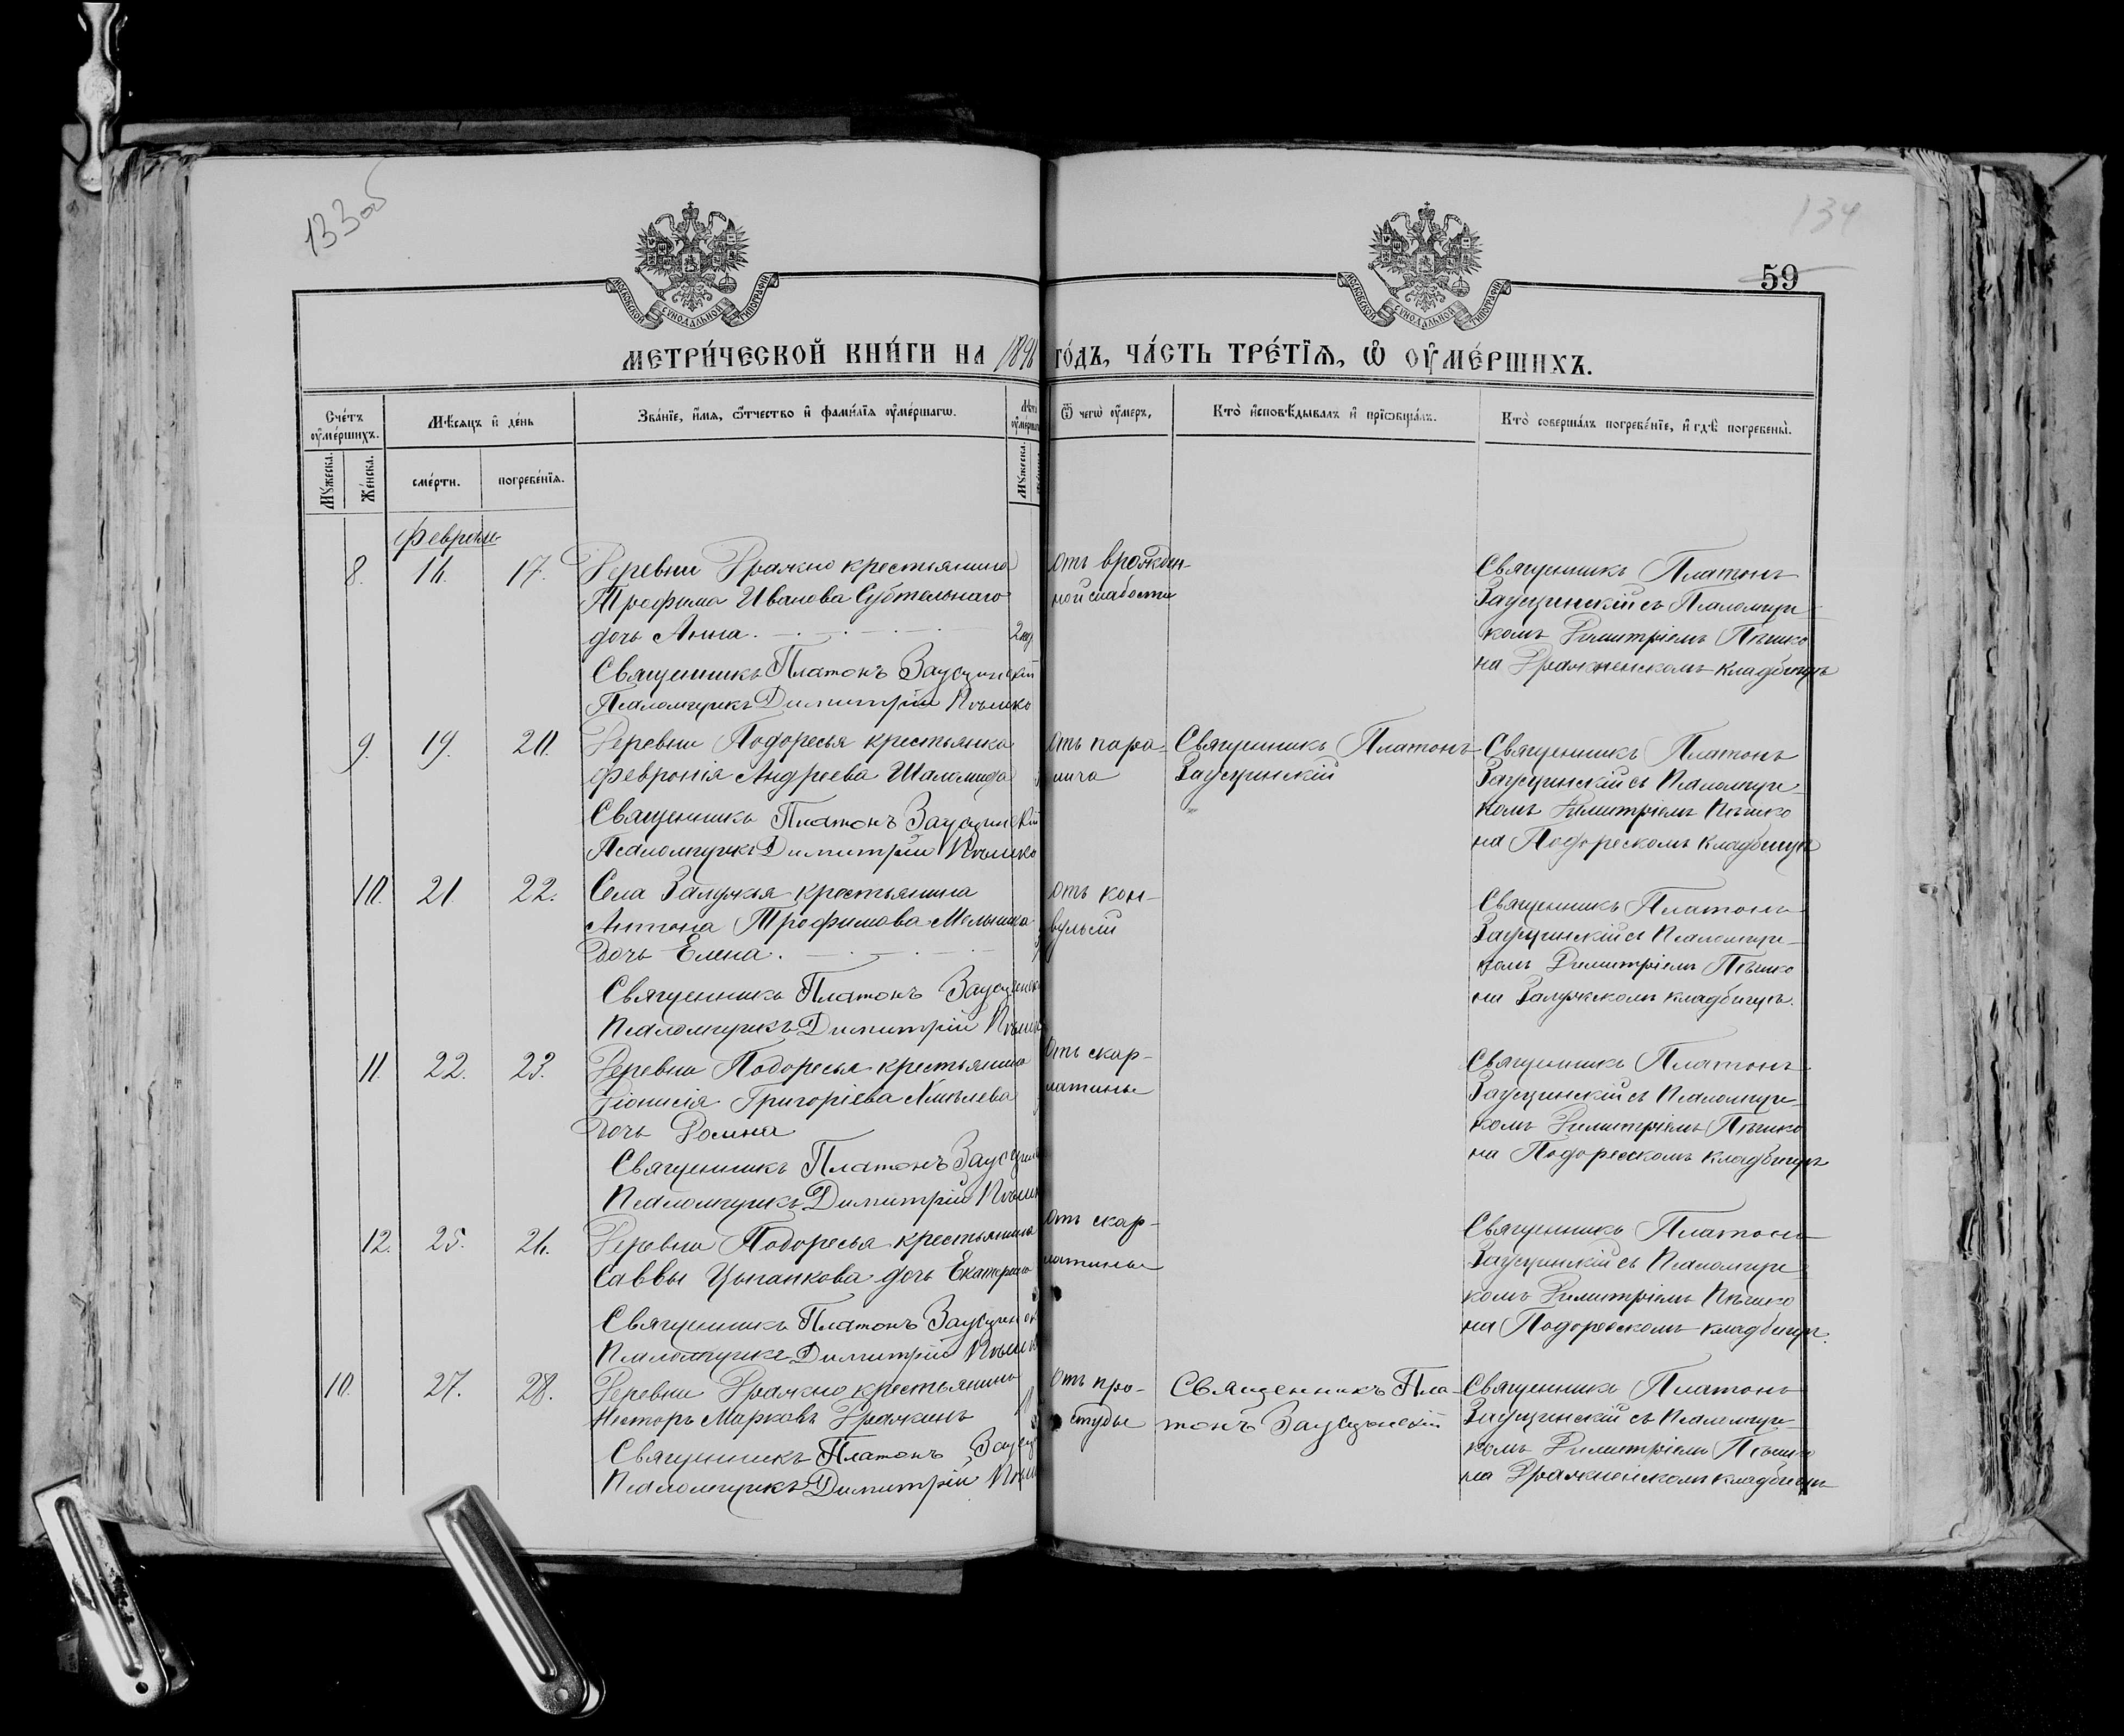 133об
134
59
МОСКОВСКОЙ СѴНОДАЛЬНОЙ ТИПОГРАФІИ
МОСКОВСКОЙ СѴНОДАЛЬНОЙ ТИПОГРАФІИ
МЕТРИ́ЧЕСКОЙ КНИ́ГИ НА 1896 ГО́ДЪ, ЧА́СТЬ ТРЕ́ТЇѦ, Ѡ҆ ОУ҆МЕ́РШИХЪ.
Сче́тъ оу҆ме́ршихъ.
Мѣ́сѧцъ и҆ де́нь
Зва́нїе, и҆́мѧ, ѻ҆́тчество и҆ фами́лїѧ оу҆ме́ршагѡ.
Ѿ чегѡ̀ оу҆́меръ,
Кто̀ и҆сповѣ́дывалъ и҆ прїѡбща́лъ.
Кто̀ соверша́лъ погребе́нїе, и҆ гдѣ̀ погребены̀.
Мꙋ́жеска.
Же́нска.
сме́рти.
погребе́нїѧ.
Мꙋ́жеска.
Февраль
8. 16. 17. Деревни Дражно крестьянина
Трофима Иванова Субтельнаго
дочь Анна. 2 нед
Священникъ Платонъ Заусцинскій
Псаломщикъ Димитрій Пѣшко
отъ врожден-
ной слабости
Священникъ Платонъ
Заусцинскій съ Псаломщи-
комъ Димитріемъ Пѣшко
на Дражненскомъ кладбищѣ
9. 19. 20. Деревни Подоресья крестьянка
Февронія Андреева Шаломида
Священникъ Платонъ Заусцинскій
Псаломщикъ Димитрій Пѣшко
отъ пара-
лича
Священникъ Платонъ
Заусцинскій
Священникъ Платонъ
Заусцинскій съ Псаломщи-
комъ Димитріемъ Пѣшко
на Подоресскомъ кладбищѣ
10. 21. 22. Села Залужья крестьянина
Антона Трофимова Мельника
дочь Елена.
Священникъ Платонъ Заусцинск
Псаломщикъ Димитрій Пѣшк
отъ кон-
вульсій
Священникъ Платонъ
Заусцинскій съ Псаломщи-
комъ Димитріемъ Пѣшко
на Залужскомъ кладбищѣ.
11. 22. 23. Деревни Подоресья крестьянина
Діонисія Григоріева Хмѣлева
дочь Домна
Священникъ Платонъ Заусцин
Псаломщикъ Димитрій Пѣшк
отъ скар-
латины
Священникъ Платонъ
Заусцинскій съ Псаломщи-
комъ Димитріемъ Пѣшко
на Подоресскомъ кладбищѣ
12. 25. 26. Деревни Подоресья крестьянина
Саввы Цыпанкова дочь Екатерина
Священникъ Платонъ Заусцинск
Псаломщикъ Димитрій Пѣшко
отъ скар-
латины
Священникъ Платонъ
Заусцинскій съ Псаломщи-
комъ Димитріемъ Пѣшко
на Подоресскомъ кладбищѣ.
10. 27. 28. Деревни Дражно крестьянинъ
Несторъ Марковъ Дражинъ
Священникъ Платонъ Заусц
Псаломщикъ Димитрій Пѣш
отъ про-
студы
Священникъ Пла-
тонъ Заусцинскій
Священникъ Платонъ
Заусцинскій съ Псаломщи-
комъ Димитріемъ Пѣшко
на Дражненскомъ кладбищѣ